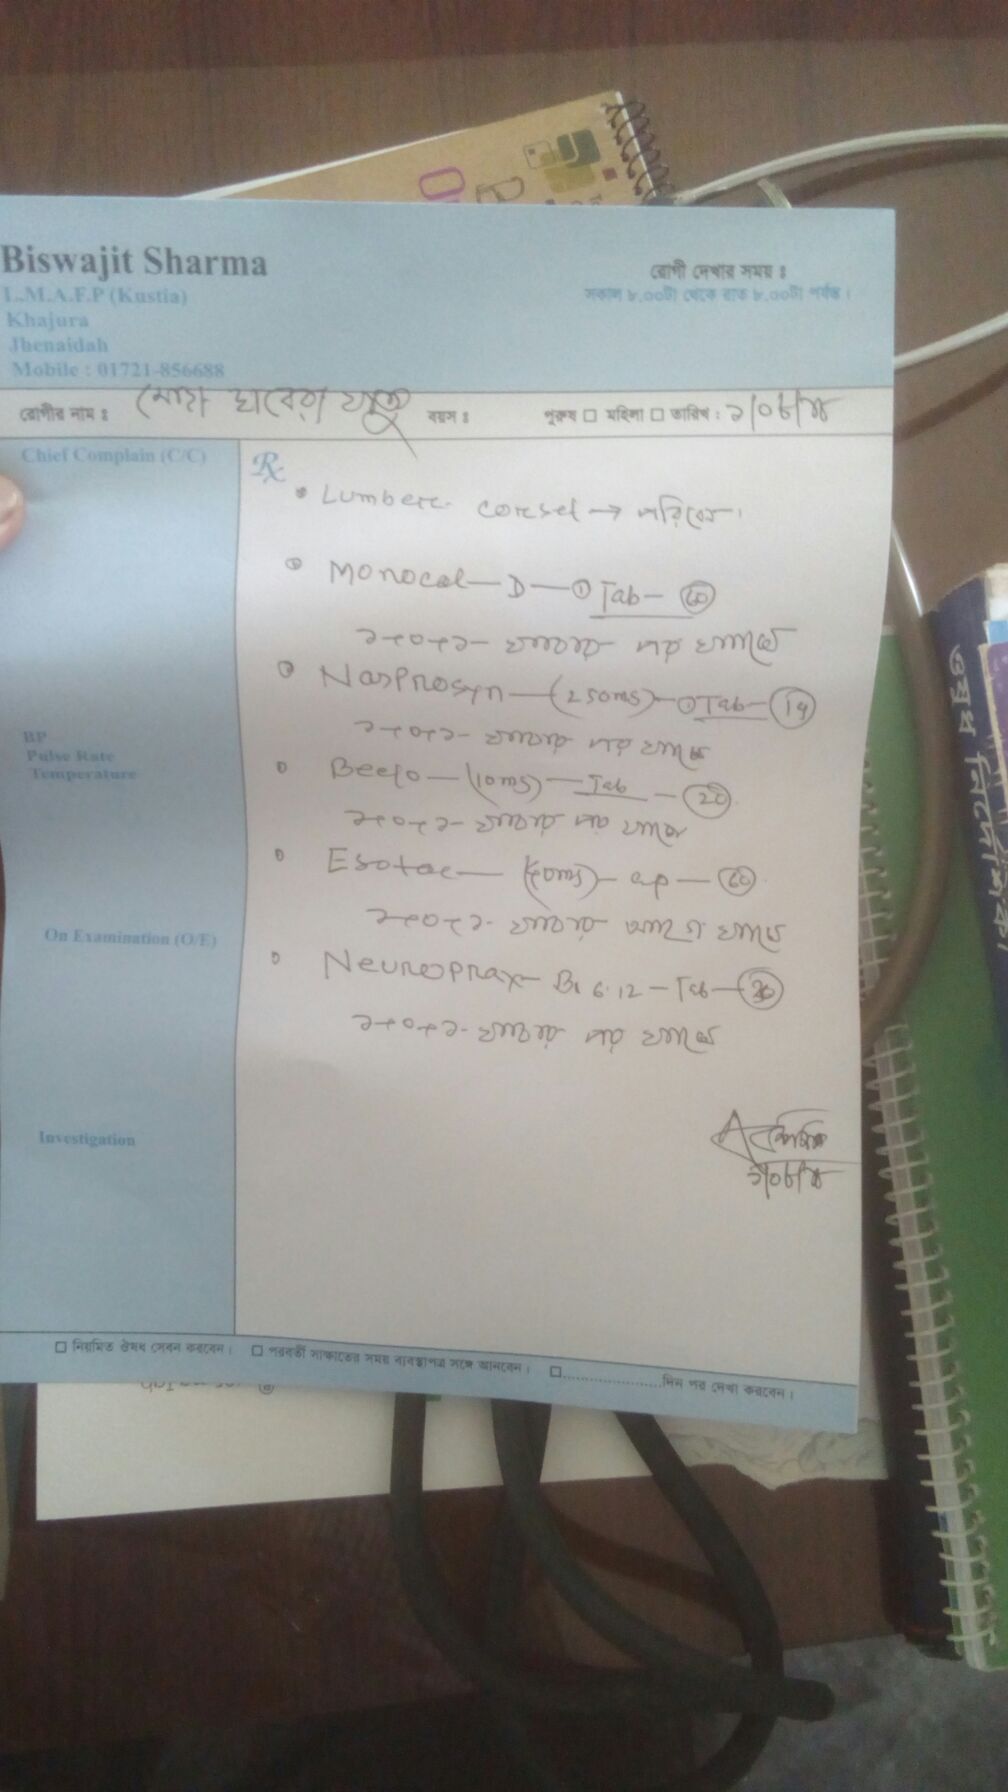 Biswajit Sharma
L.M.A.F.P (Kustia)
Khajura
Jhenaidah
Mobile : 01721-856688
রোগী দেখার সময় ঃ
সকাল ৮.০০টা থেকে রাত ৮.০০টা পর্যন্ত।
রোগীর নাম ঃ মোছাঃ বয়স ঃ পুরুষ □ মহিলা □ তারিখ :
Chief Complain (C/C)
BP
Pulse Rate
Temperature
On Examination (O/E)
Investigation
Rx
Lumber corset →
Monocal — D — Tab — 60
১+০+১ - খাবার পর খাবে
Naprosyn — (250mg) — Tab — 14
১+০+১ - খাবার পর খাবে
Beclo — (10mg) — Tab — 20
১+০+১ - খাবার পর খাবে
Esotac — cap — 60
১+০+১ - খাবার আগে খাবে
Neuroprax — B1 6.12 — Tab — 30
১+০+১ - খাবার পর খাবে
□ নিয়মিত ঔষধ সেবন করবেন। □ পরবর্তী সাক্ষাতের সময় ব্যবস্থাপত্র সঙ্গে আনবেন। □....................দিন পর দেখা করবেন।
ওষুধ নির্দেশিকা